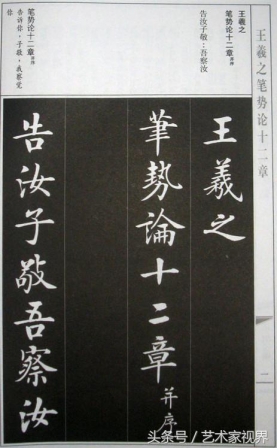 王羲之笔势论十二章
王羲之
笔势论十二章并序
告汝子敬：吾察汝
笔势论十二章并序
告诉你，子敬，我察觉
你
王羲之
筆勢論十二章并序
告汝子敬吾察汝
二
头条号/艺术家视界